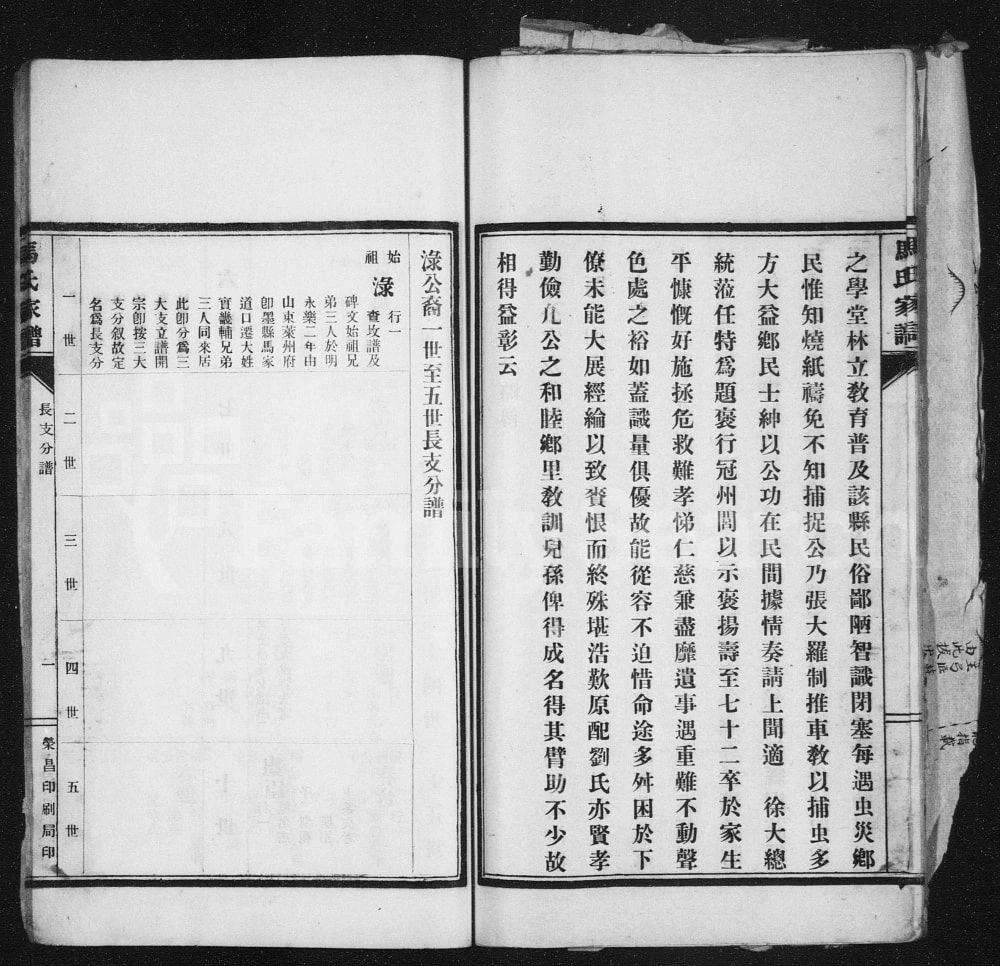 馬氏家譜
之學堂林立教育普及該縣民俗鄙陋智識閉塞每遇虫災鄉
民惟知燒紙禱免不知捕捉公乃張大羅制推車教以捕虫多
方大益鄉民士紳以公功在民間據情奏請上聞適 徐大總
統蒞任特爲題褒行冠州閭以示褒揚壽至七十二卒於家生
平慷慨好施拯危救難孝悌仁慈兼盡靡遺事遇重難不動聲
色處之裕如蓋識量俱優故能從容不迫惜命途多舛困於下
僚未能大展經綸以致賫恨而終殊堪浩歎原配劉氏亦賢孝
勤儉凢公之和睦鄉里教訓兒孫俾得成名得其臂助不少故
相得益彰云
淥公裔一世至五世長支分譜
始祖 淥 行一
查攷譜及
碑文始祖兄
弟三人於明
永樂二年由
山東萊州府
卽墨縣馬家
道口遷大姓
實畿輔兄弟
三人同來居
此卽分爲三
大支立譜開
宗卽按三大
支分叙故定
名爲長支分
一世
二世
三世
四世
五世
馬氏家譜
長支分譜
一
榮昌印刷局印